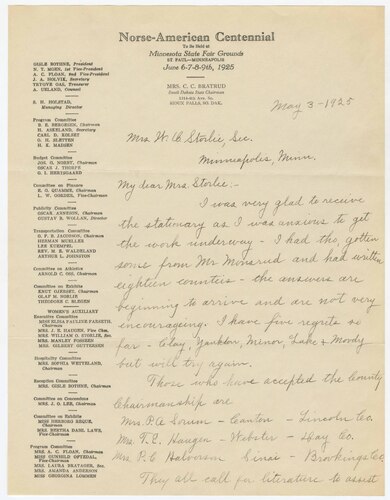 Norse-American Centennial
To Be Held at
Minnesota State Fair Grounds
ST PAUL—MINNEAPOLIS
June 6-7-8-9th, 1925
MRS. C. C. BRATRUD
South Dakota State Chairman
SIOUX FALLS, SO. DAK.
GISLE BOTHNE, President
N. T. MOEN, 1st Vice-President
A. C. FLOAN, 2nd Vice-President
J. A. HOLVIK, Secretary
TRYGVE OAS, Treasurer
A. UELAND, Counsel
S. H. HOLSTAD,
Managing Director
Program Committee
B. E. BERGESEN, Chairman
H. ASKELAND, Secretary
CARL D. KOLSET
O. H. SLETTEN
H. E. MADSEN
Budget Committee
JOS. G. NORBY, Chairman
OSCAR J. THORPE
G. I. HERTSGAARD
Committee on Finance
E. G. QUAMME, Chairman
L. W. OORDEL, Vice-Chairman
Publicity Committee
OSCAR ARNESON, Chairman
GUSTAV B. WOLLAN, Director
Transportation Committee
G. P. B. JACOBSON, Chairman
HERMAN MUELLER
LEE KUEMPEL
REV. M. E. WALDELAND
ARTHUR L. JOHNSTON
Committee on Athletics
ARNOLD C. OSS, Chairman
Committee on Exhibits
KNUT GJERSET, Chairman
OLAF M. NORLIE
THEODORE C. BLEGEN
WOMEN'S AUXILIARY
Executive Committee
MISS ELISA PAULINE FARSETH, Chairman
MRS. J. E. HAUGEN, Vice Chm.
MRS. WILLIAM O. STORLIE, Sec.
MRS. MANLEY FOSSEEN
MRS. GILBERT GUTTERSEN
Hospitality Committee
MRS. SOPHIA WETTELAND,
Chairman
Reception Committee
MRS. GISLE BOTHNE, Chairman
Committee on Concessions
MRS. J. O. LEE, Chairman
Committee on Exhibits
MISS HERBORG REQUE,
Chairman
MRS. BERTHA DAHL LAWS,
Vice-Chairman
Program Committee
MRS. A. C. FLOAN, Chairman
MRS. GUNHILD OFTEDAL,
Vice-Chairman
MRS. LAURA BRATAGER, Sec.
MRS. AMANDA ANDERSON
MISS GEORGINA LOMMEN
May 3-1925
Mrs. W. O. Storlie, Sec.
Minneapolis, Minn.
My dear Mrs. Storlie:-
I was very glad to receive
the stationary as I was anxious to get
the work underway - I had tho, gotten
some from Mr. Monsrud and had written
eighteen counties - the answers are
beginning to arrive and are not very
encouraging. I have five regrets so
far - Clay, Yankton, Minor, Lake & Moody
but will try again.
Those who have accepted the County
Chairmanship are
Mrs. P. A. Sorum - Canton - Lincoln Co.
Mrs. T. E. Haugen - Webster - Day Co.
Mrs. P. C. Halvorson Sinai - Brookings Co.
They all call for literature to assist